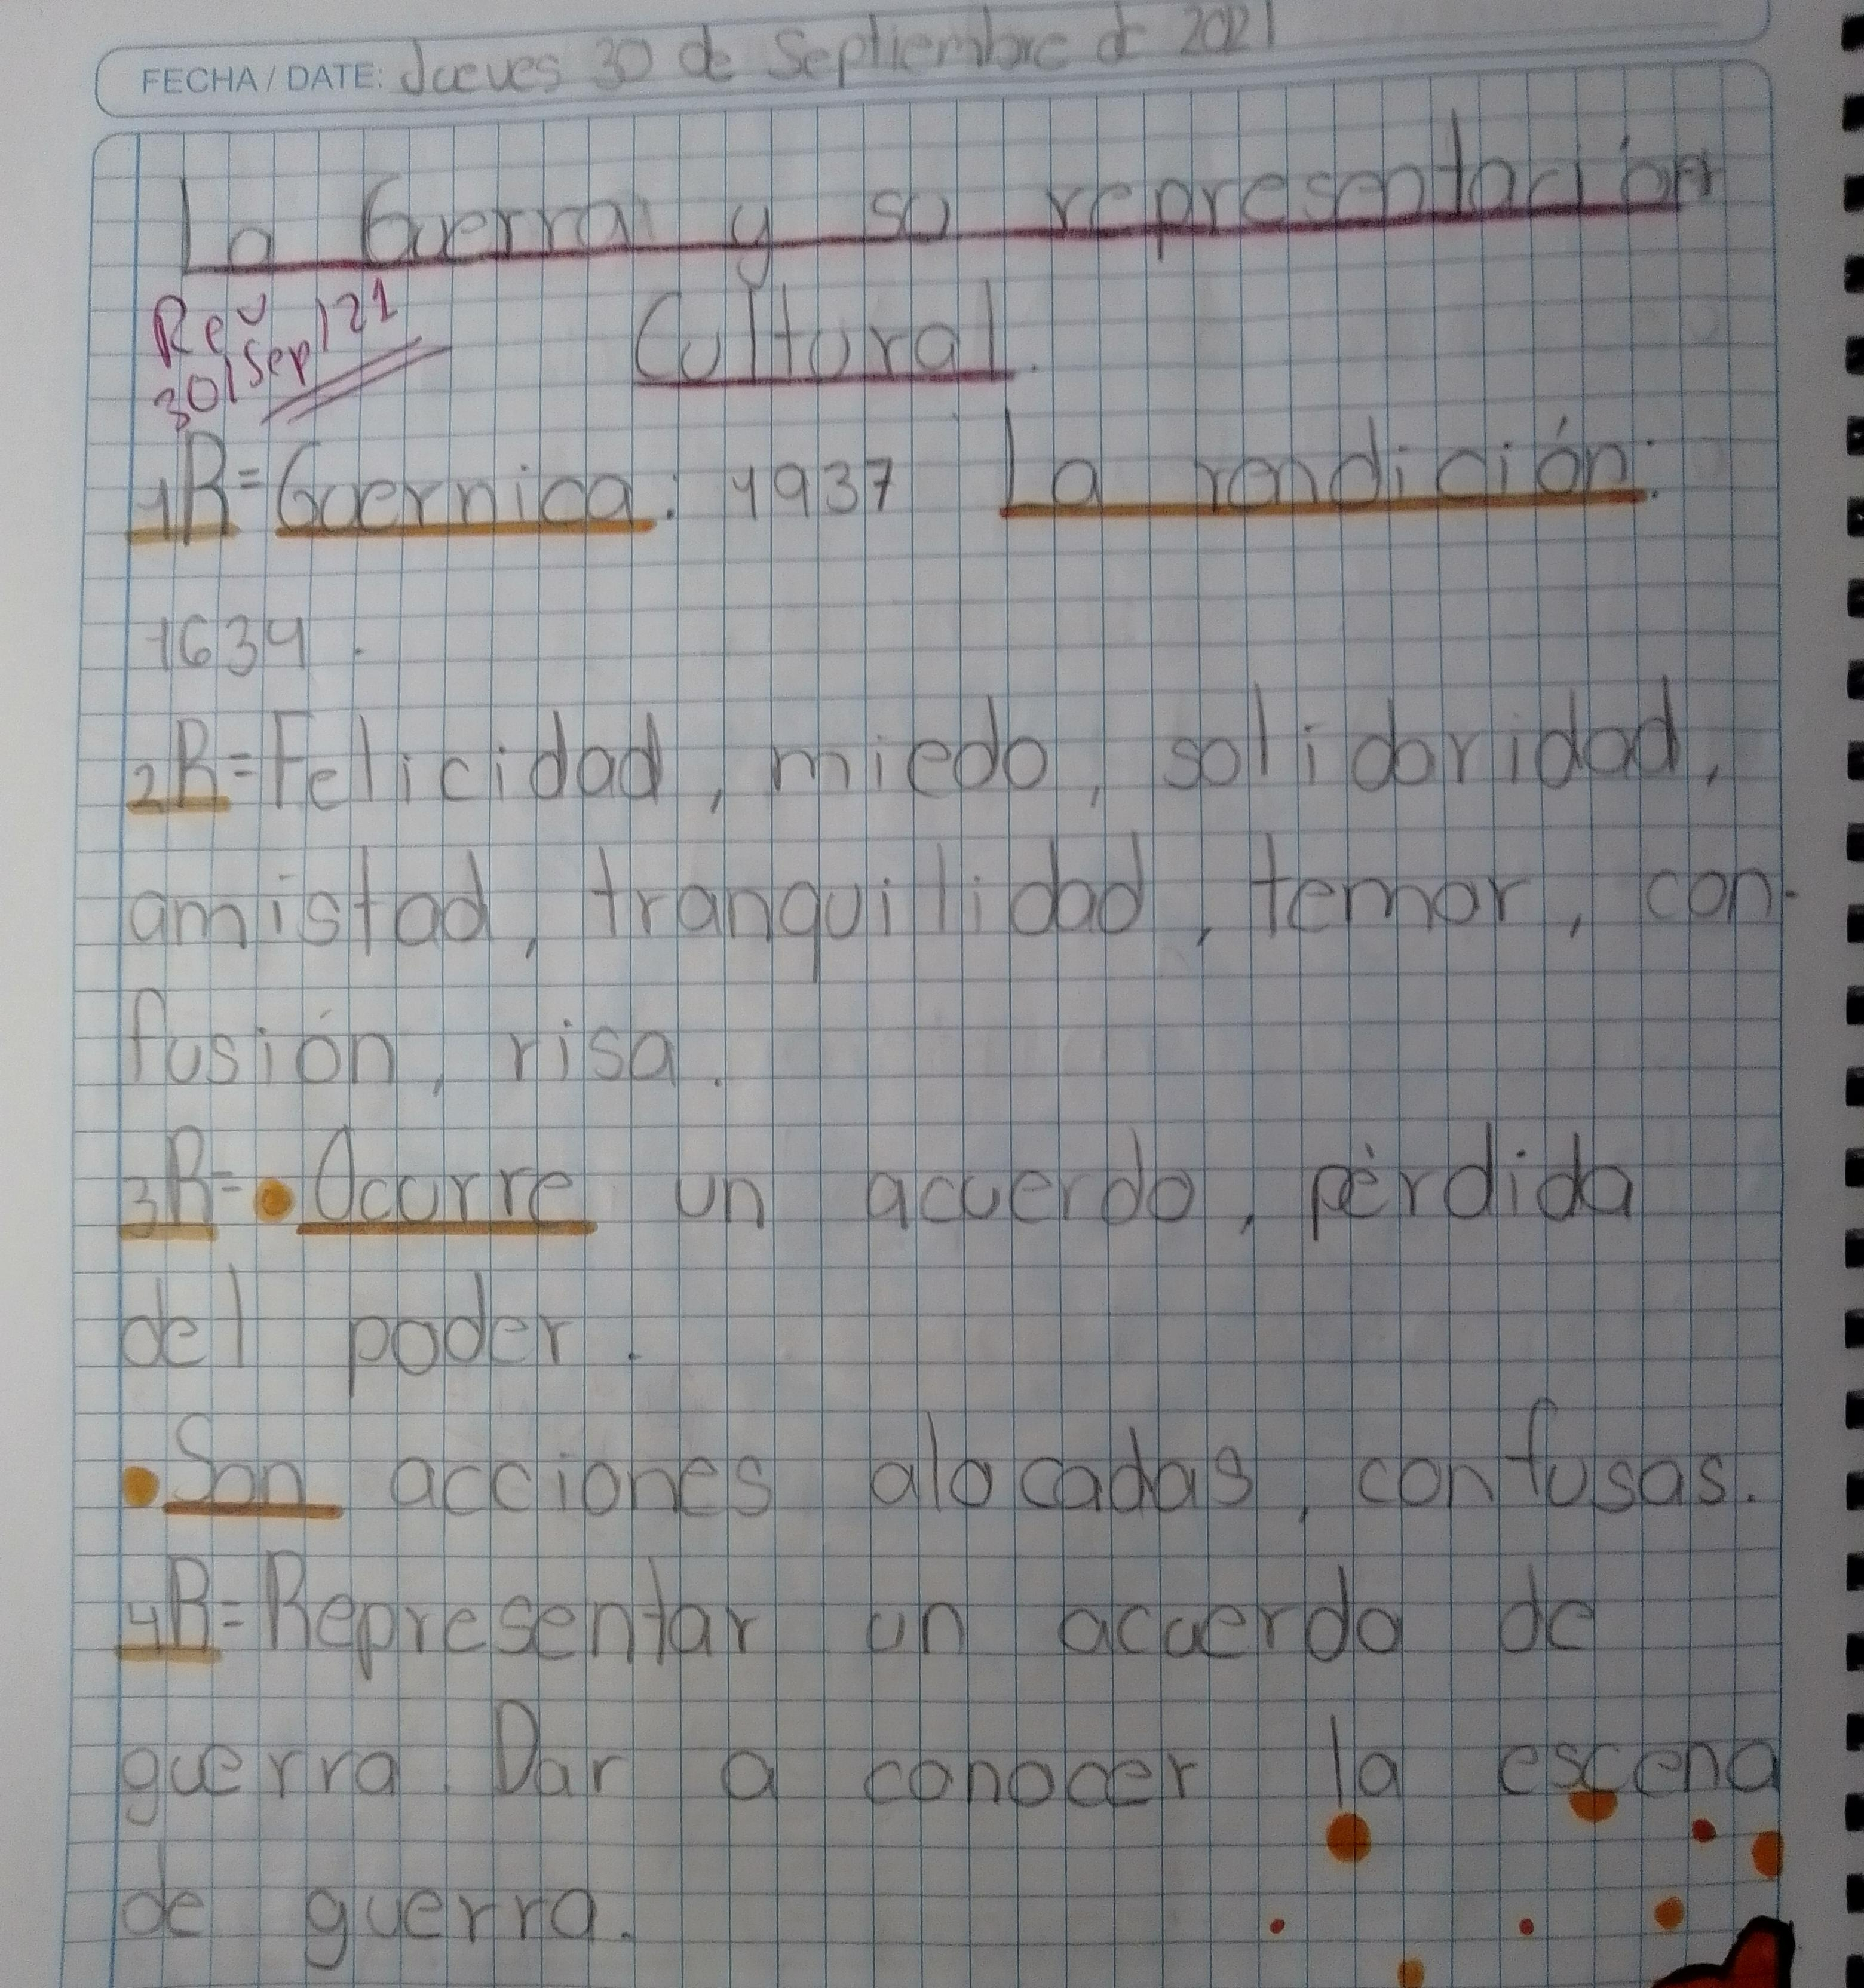 FECHA/DATE: Jueves 30 de Septiembre de 2021
La Guerra y su representación
Cultural.
Rev
30/Sep/21
1R= Guernica: 1937 La rendición:
1634.
2R= Felicidad, miedo, solidaridad,
amistad, tranquilidad, temor, con-
fusión, risa.
3R= • Ocurre un acuerdo, pérdida
del poder.
• Son acciones alocadas, confusas.
4R= Representar un acuerdo de
guerra. Dar a conocer la escena
de guerra.